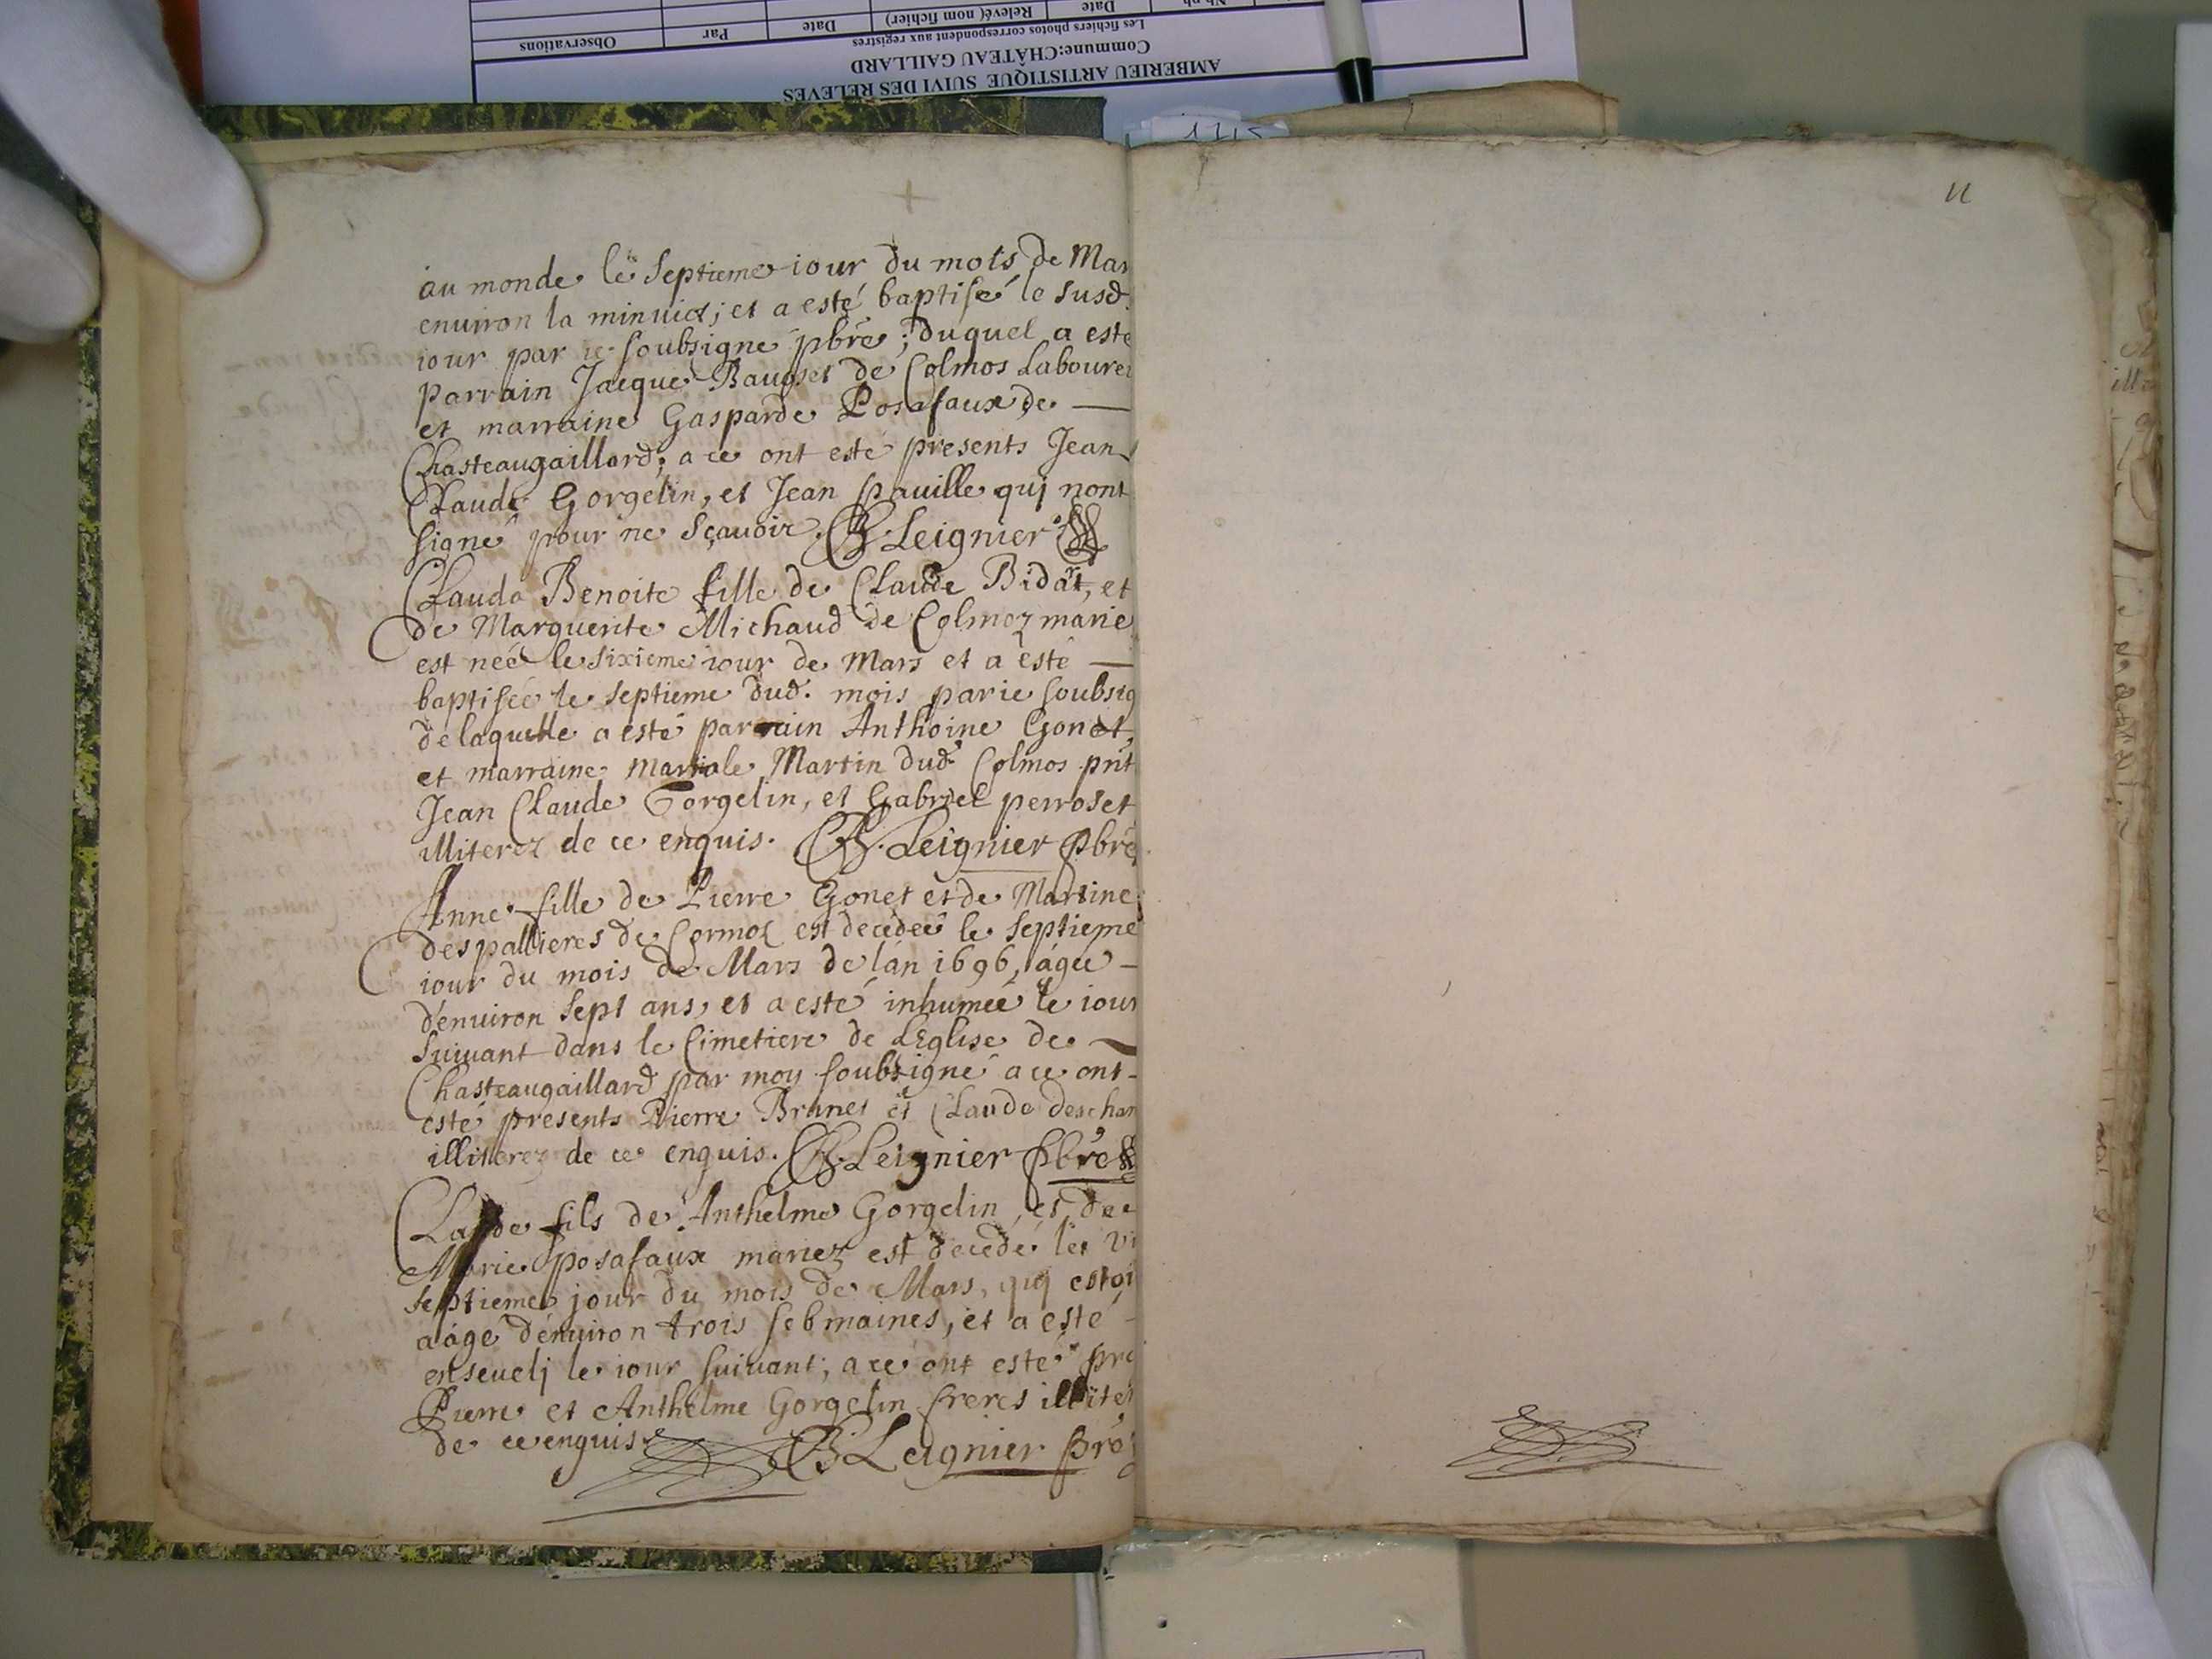 AMBERIEU ARTISTIQUE SUIVI DES RELEVES
Commune:CHÂTEAU GAILLARD
Les fichiers photos correspondent aux registres
Nb ph Date Relevé( nom fichier) Date Par Observations
11
au monde le septieme iour du mois de Mar
enuiron la minuict; et a esté baptisé le susd.
iour par ie soubsigné pbre; duquel a esté
parrain Jacque de Colmos Laboure
et marraine Gasparde Posafaux de —
Chasteaugaillard; a ce ont esté presents Jean
Claude Gorgelin, et Jean pauille qui nont
signé pour ne sçauoir. Leignier
Clauda Benoite fille de Claude Bidat, et
de Marguerite Michaud de Colmoz marie
est neé le sixieme iour de Mars et a esté —
baptisée le septieme dud. mois par ie soubsig
de laquelle a esté parrain Anthoine Gonet,
et marraine Martin dud. Colmos pnt
Jean Claude Gorgelin, et Gabriel perroset
illiterez de ce enquis. Leignier pbre
Anne fille de Pierre Gonet et de Martine
despallieres de Cormoz est decedeé le septieme
iour du mois de Mars de lán 1696, ágée —
d'enuiron sept ans, et a esté inhumeé le iour
suiuant dans le Cimetiere de LEglise de —
Chasteaugaillard par moy soubsigné a ce ont
esté presents Pierre Brunet et Claude deschan
illiterez de ce enquis. Leignier pbre
Claude fils de Anthelme Gorgelin, et de
Marie posafaux mariez est decedé le vi
septieme jour du mois de Mars, qui estoi
aágé d'enuiron trois sebmaines, et a esté —
enseuelj le iour suiuant; a ce ont esté pre
Pierre et Anthelme Gorgelin freres illite
de ce enquis Leignier pre